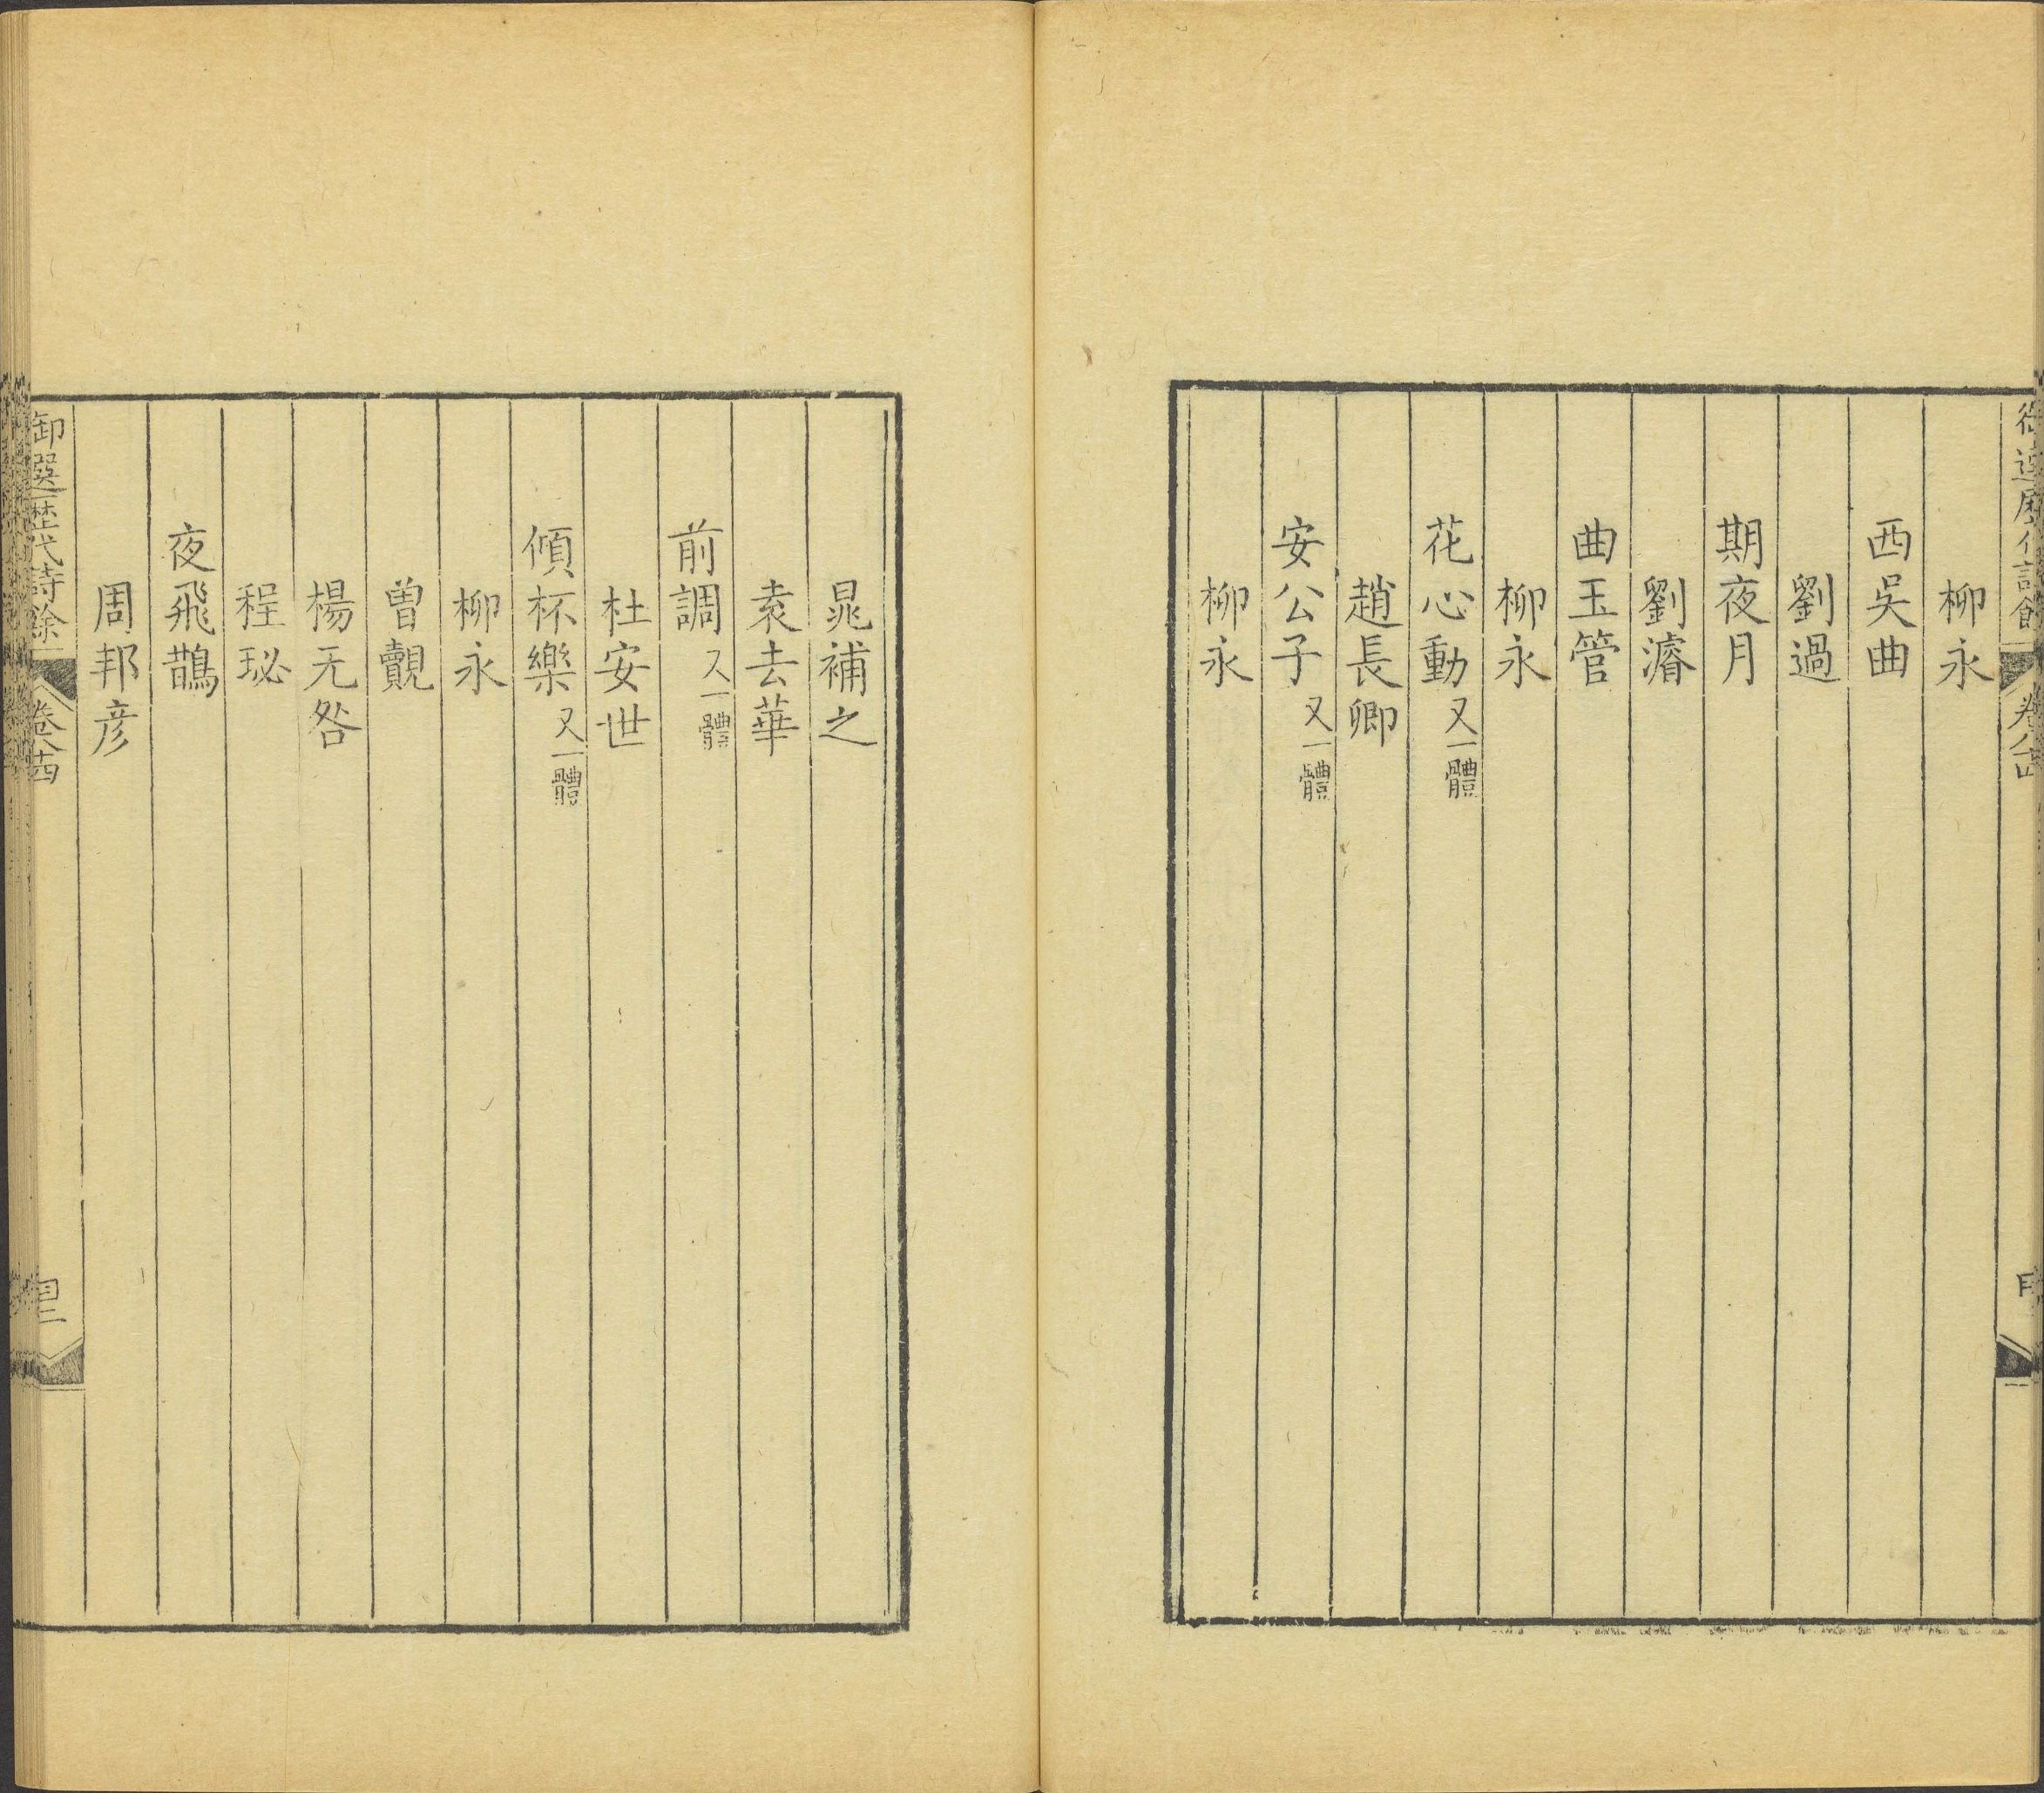 柳永
西吳曲
劉過
期夜月
劉濬
曲玉管
柳永
花心動又一體
趙長卿
安公子又一體
柳永
晁補之
袁去華
前調又一體
杜安世
傾杯樂又一體
柳永
曾覿
楊无咎
程珌
夜飛鵲
周邦彥
御選歷代詩餘
卷八十四